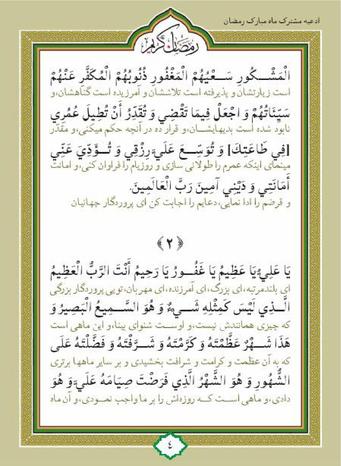 ادعیه مشترک ماه مبارک رمضان
رمضان کریم
الْمَشْكُورِ سَعْيُهُمْ الْمَغْفُورِ ذُنُوبُهُمْ الْمُكَفَّرِ عَنْهُمْ
است زیارتشان و پذیرفته است تلاششان و آمرزیده است گناهشان،و
سَيِّئَاتُهُمْ وَ اجْعَلْ فِيمَا تَقْضِي وَ تُقَدِّرُ أَنْ تُطِيلَ عُمُرِي
نابود شده است بدیهایشان،و قرار ده در آنچه حکم میکنی،و مقدّر
[فِي طَاعَتِكَ] وَ تُوَسِّعَ عَلَيَّ رِزْقِي وَ تُؤَدِّيَ عَنِّي
مینمای اینکه عمرم را طولانی سازی و روزیام را فراوان کنی،و امانت
أَمَانَتِي وَ دَيْنِي آمِينَ رَبَّ الْعَالَمِينَ.
و قرضم را ادا نمایی،دعایم را اجابت کن ای پروردگار جهانیان
﴿٢﴾
يَا عَلِيُّ يَا عَظِيمُ يَا غَفُورُ يَا رَحِيمُ أَنْتَ الرَّبُّ الْعَظِيمُ
ای بلندمرتبه،ای بزرگ،ای آمرزنده،ای مهربان،تویی پروردگار بزرگی
الَّذِي لَيْسَ كَمِثْلِهِ شَيْءٌ وَ هُوَ السَّمِيعُ الْبَصِيرُ وَ
که چیزی همانندش نیست،و اوست شنوای بینا،و این ماهی است
هَذَا شَهْرٌ عَظَّمْتَهُ وَ كَرَّمْتَهُ وَ شَرَّفْتَهُ وَ فَضَّلْتَهُ عَلَى
که به آن عظمت و کرامت و شرافت بخشیدی و بر سایر ماهها برتری
الشُّهُورِ وَ هُوَ الشَّهْرُ الَّذِي فَرَضْتَ صِيَامَهُ عَلَيَّ وَ هُوَ
دادی،و ماهی است که روزهاش را بر ما واجب نمودی،و آن ماه
٤